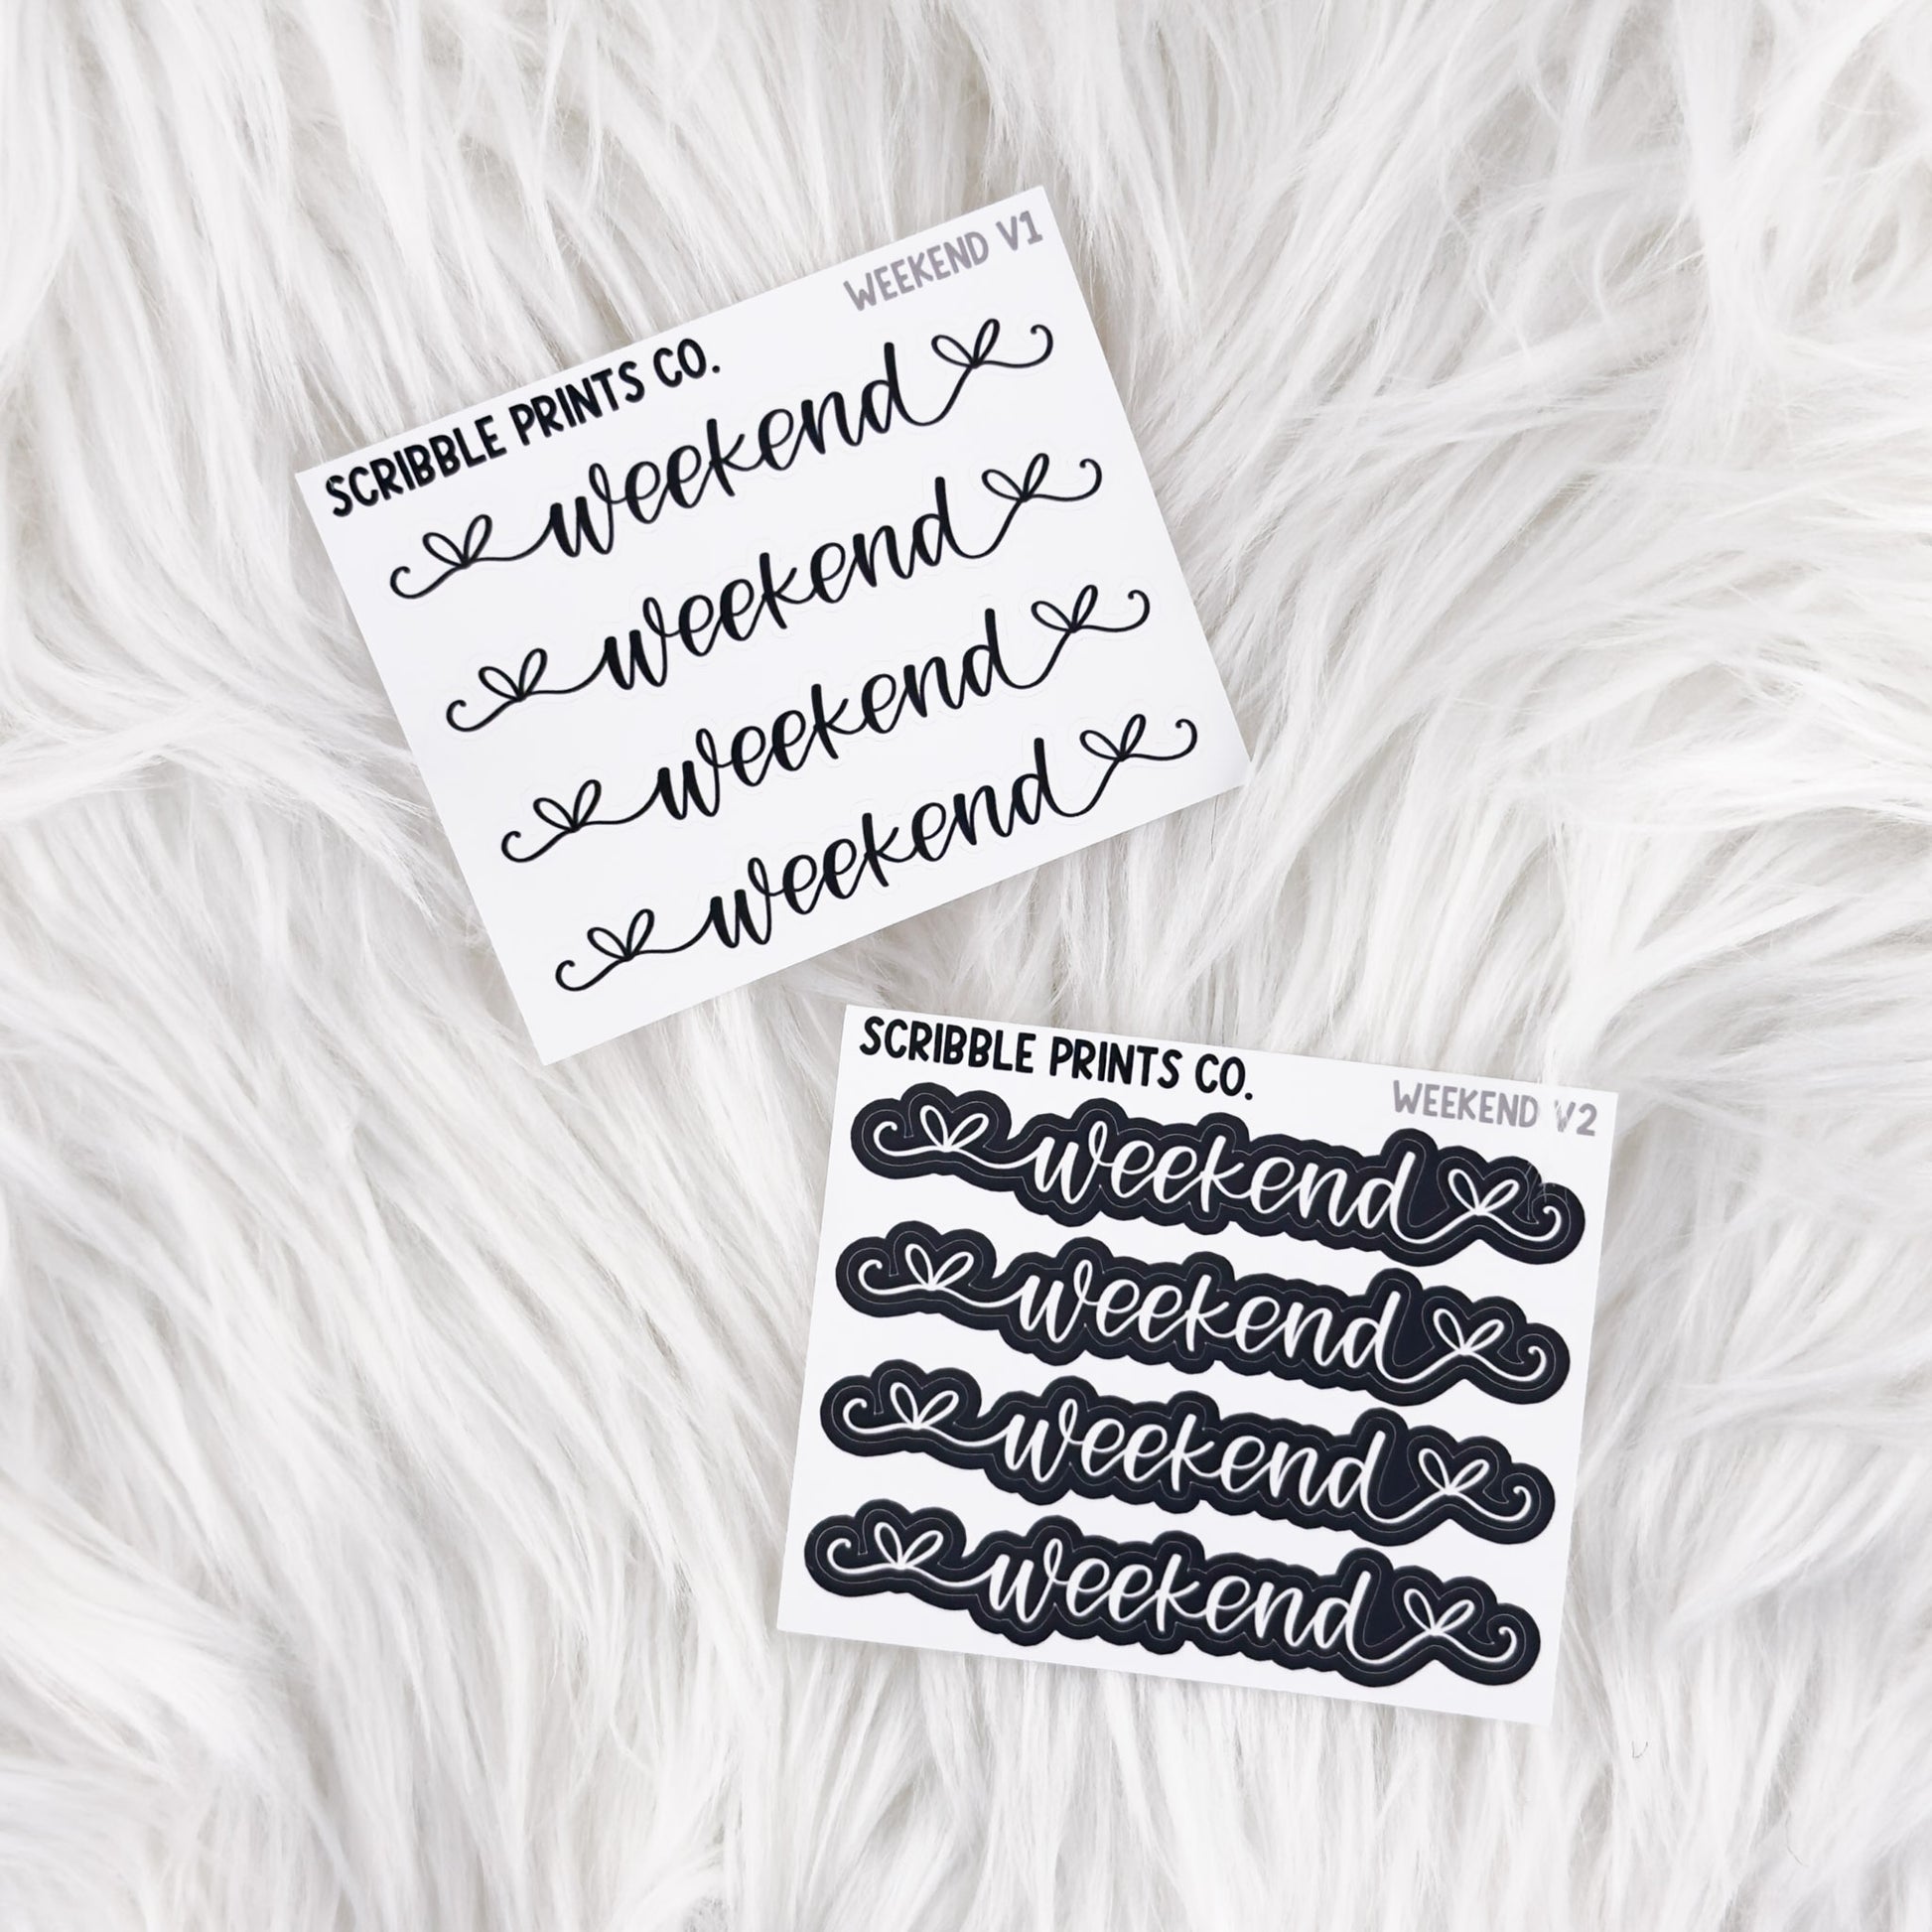 SCRIBBLE PRINTS CO.
WEEKEND V1
weekend
weekend
weekend
weekend
SCRIBBLE PRINTS CO.
WEEKEND V2
weekend
weekend
weekend
weekend